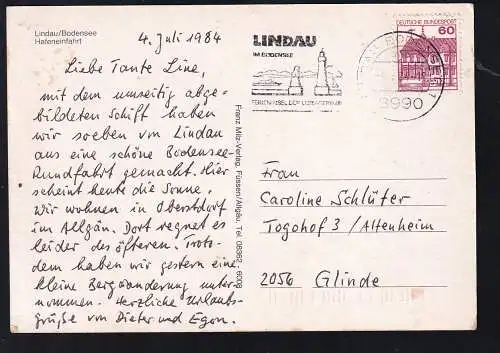 Lindau/Bodensee
Hafeneinfahrt
4. Juli 1984
Liebe Tante Line,
mit dem umseitig abge-
bildeten Schift haben
wir soeben von Lindau
aus eine schöne Bodensee-
Rundfahrt gemacht. Hier
scheint heute die Sonne.
Wir wohnen in Oberstdorf
im Allgän. Dort regnet es
leider des öfteren. Trotz-
dem haben wir gestern eine
kleine Bergwanderung unter-
nommen. Herzliche Urlaubs-
grüße von Dieter und Egon.
Franz Milz-Verlag, Füssen/Allgäu, Tel. 08362 - 6009
LINDAU
IM BODENSEE
8990
DEUTSCHE BUNDESPOST
60
Frau
Caroline Schlüter
Togohof 3 / Altenheim
2056 Glinde